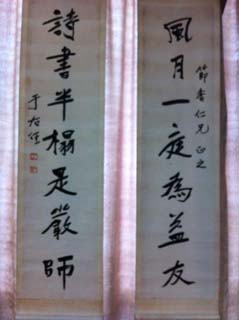 風月一庭為益友
節香仁兄正之
詩書半榻是嚴師
于右任